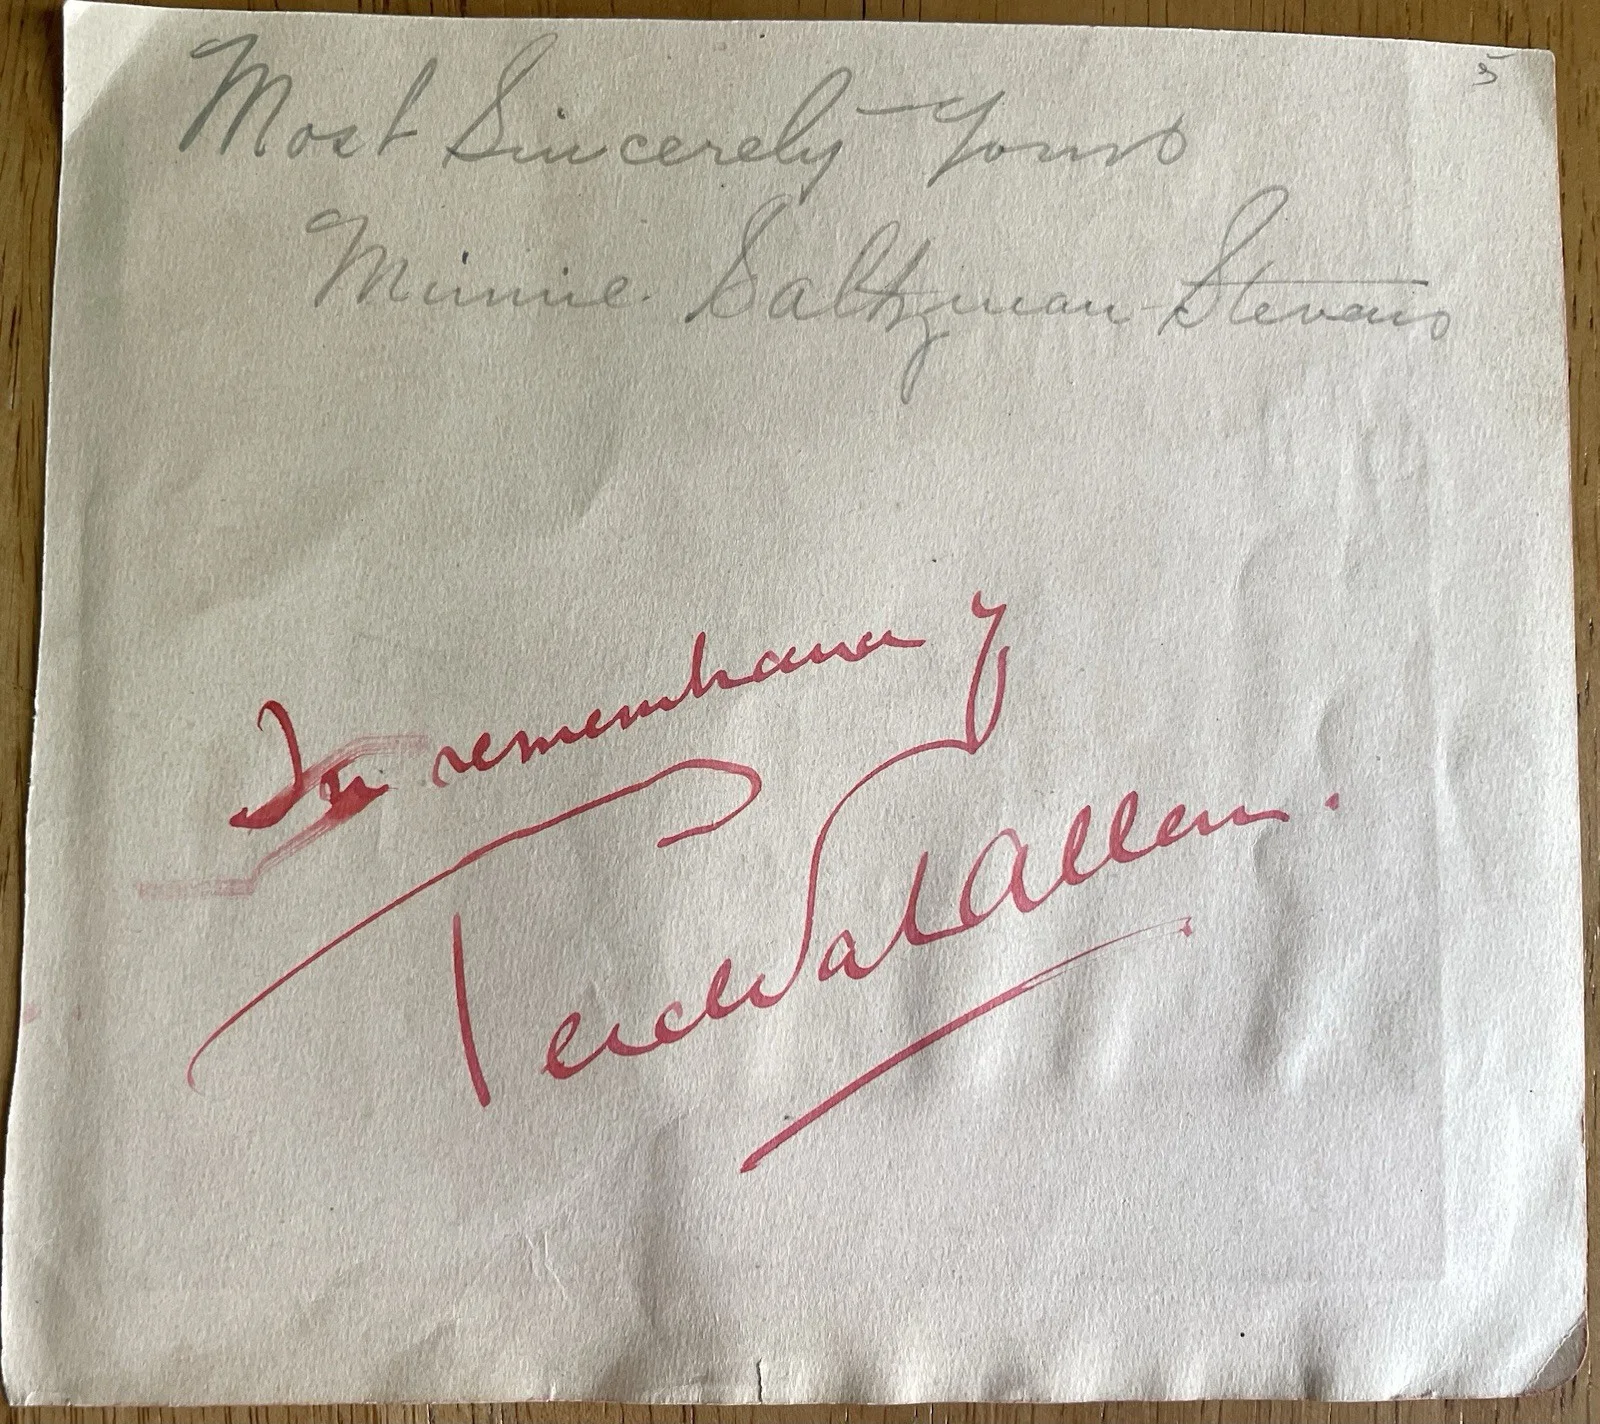 5
Most Sincerely Yours
Minnie Saltzman-Stevens
In remembrance of
Perceval Allen.